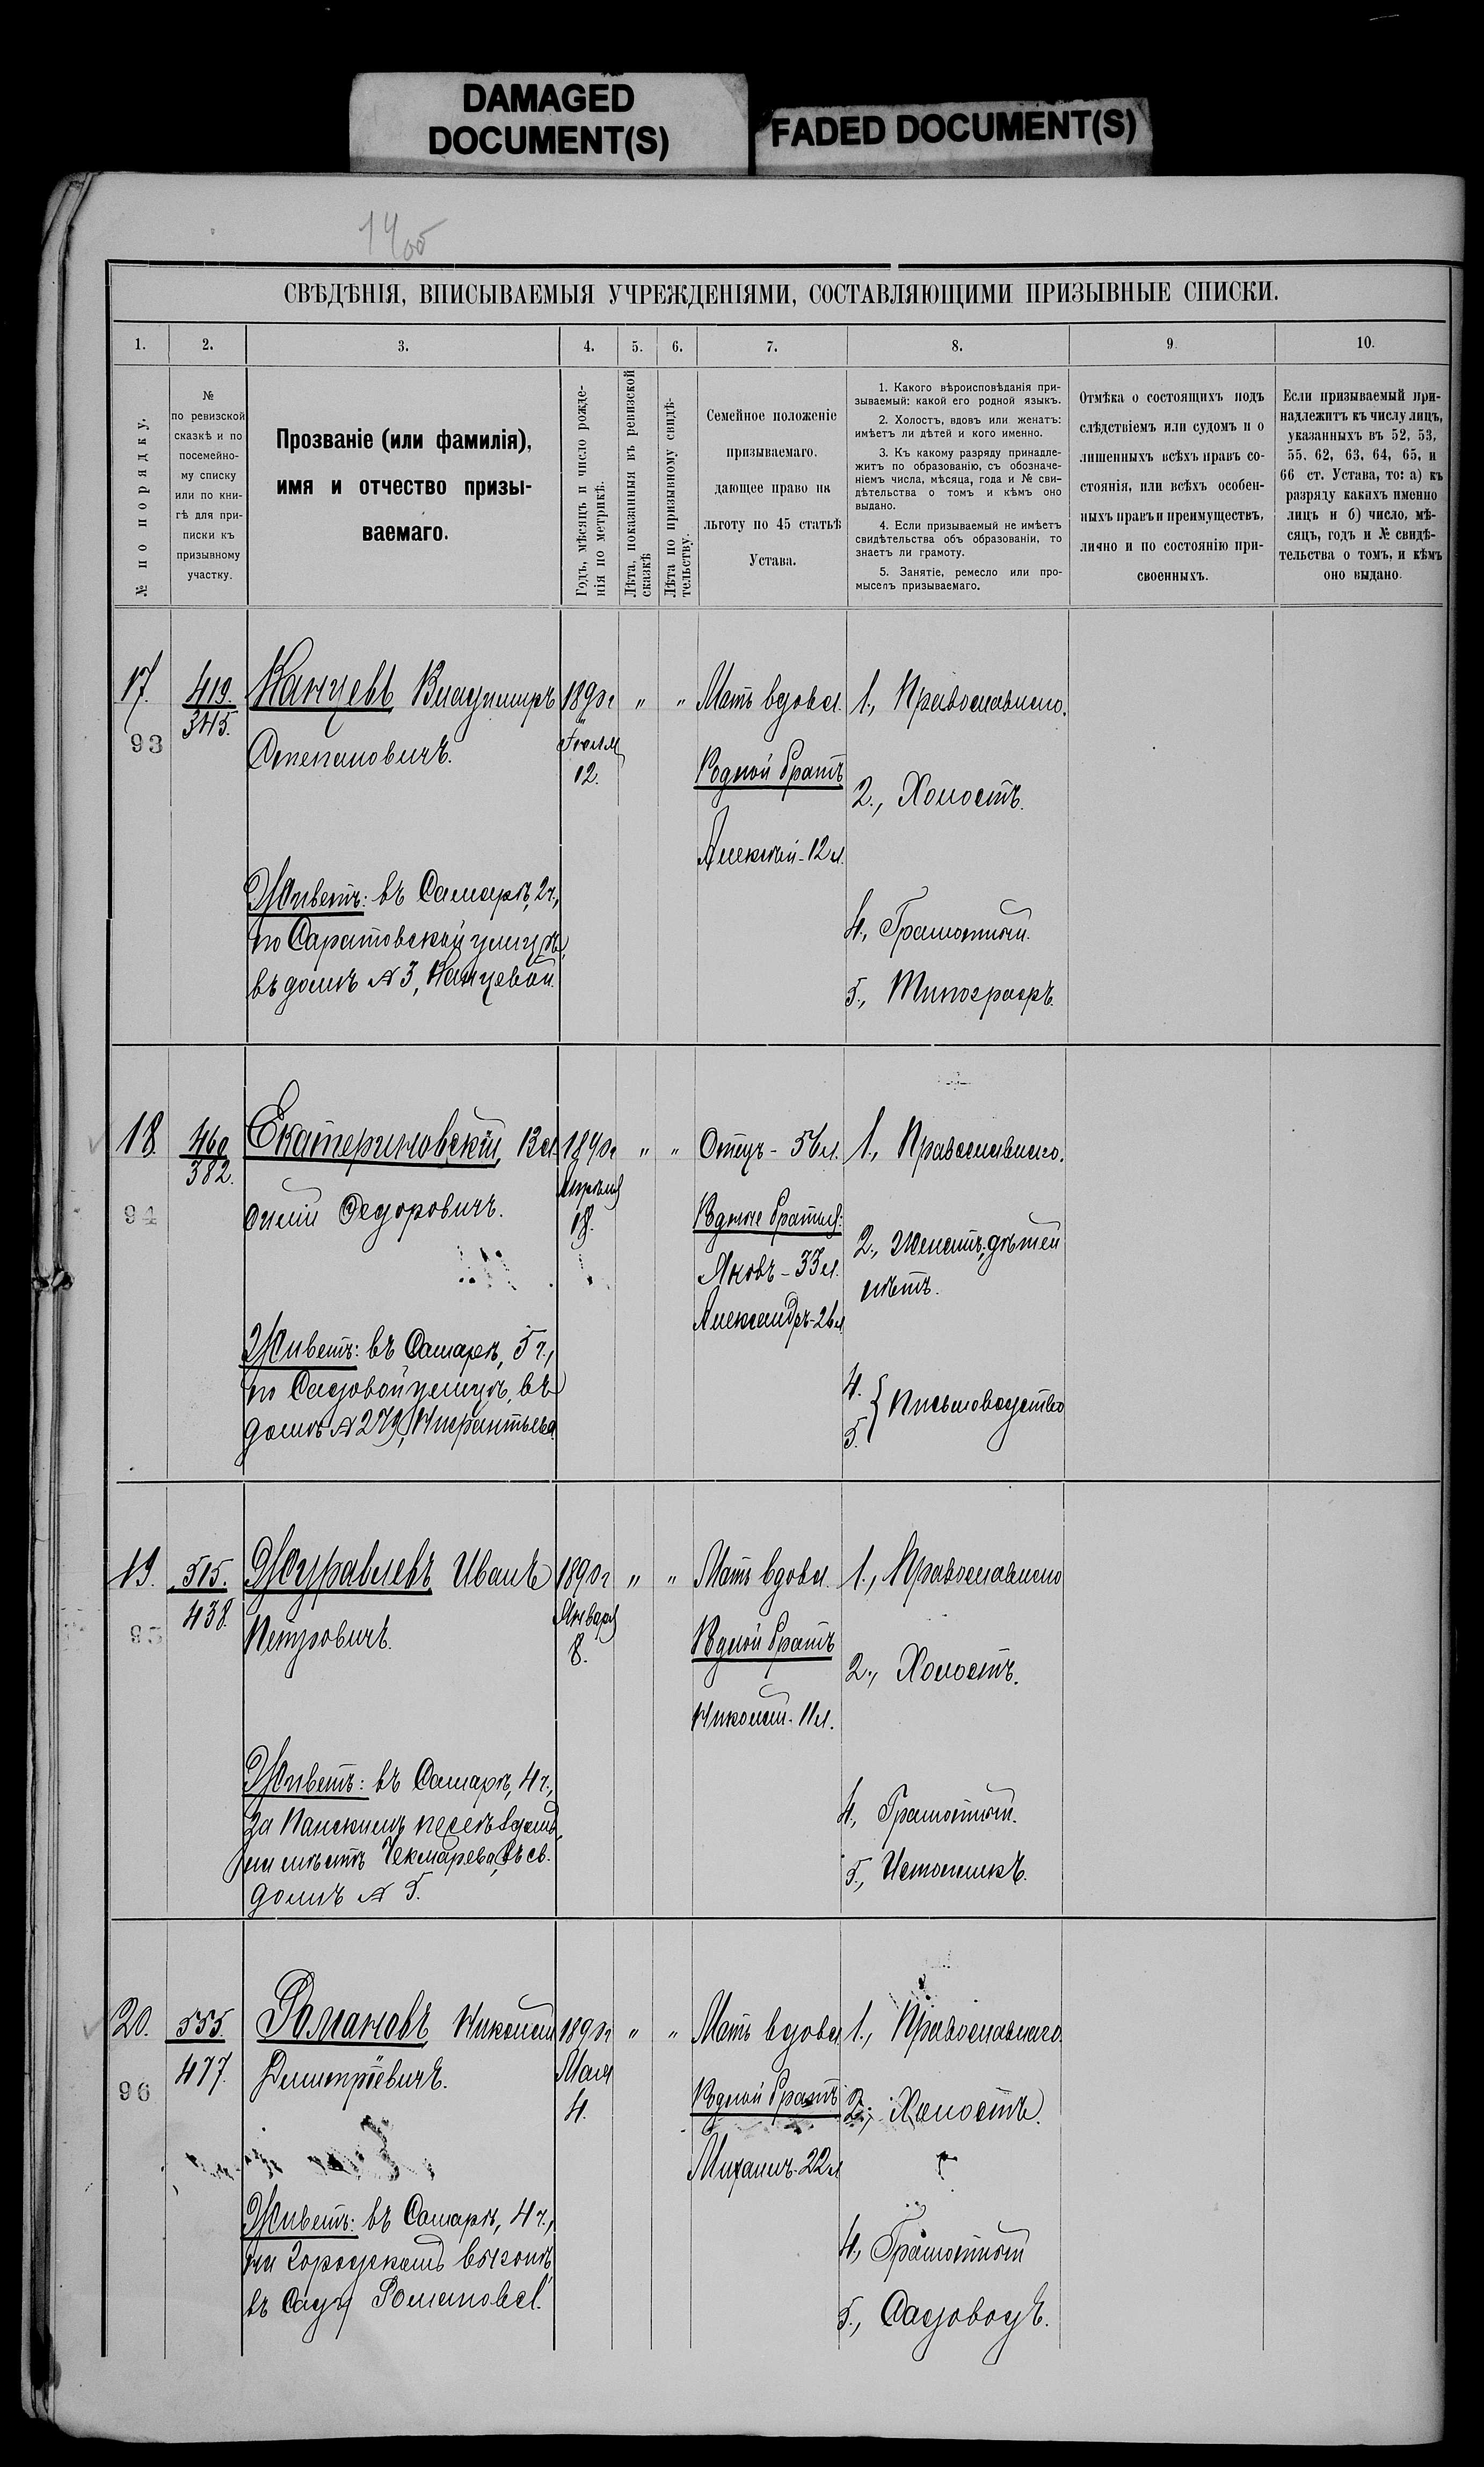 DAMAGED
DOCUMENT(S)
FADED DOCUMENT(S)
СВѢДѢНІЯ, ВПИСЫВАЕМЫЯ УЧРЕЖДЕНІЯМИ, СОСТАВЛЯЮЩИМИ ПРИЗЫВНЫЕ СПИСКИ.
1.
2.
3.
4.
5.
6.
7.
8.
9.
10.
№ по порядку.
№
по ревизской
сказкѣ и по
посемейно-
му списку
или по кни-
гѣ для при-
писки къ
призывному
участку.
Прозваніе (или фамилія),
имя и отчество призы-
ваемаго.
Годъ, мѣсяцъ и число рожде-
нія по метрикѣ.
Лѣта, показанныя въ ревизской
сказкѣ
Лѣта по призывному свидѣ-
тельству.
Семейное положеніе
призываемаго,
дающее право на
льготу по 45 статьѣ
Устава.
1. Какого вѣроисповѣданія при-
зываемый: какой его родной языкъ.
2. Холостъ, вдовъ или женатъ:
имѣетъ ли дѣтей и кого именно.
3. Къ какому разряду принадле-
житъ по образованію, съ обозначе-
ніемъ числа, мѣсяца, года и № сви-
дѣтельства о томъ и кѣмъ оно
выдано.
4. Если призываемый не имѣетъ
свидѣтельства объ образованіи, то
знаетъ ли грамоту.
5. Занятіе, ремесло или про-
мыселъ призываемаго.
Отмѣка о состоящихъ подъ
слѣдствіемъ или судомъ и о
лишенныхъ всѣхъ правъ со-
стоянія, или всѣхъ особен-
ныхъ правъ и преимуществъ,
лично и по состоянію при-
своенныхъ.
Если призываемый при-
надлежитъ къ числу лицъ,
указанныхъ въ 52, 53,
55, 62, 63, 64, 65, и
66 ст. Устава, то: а) къ
разряду какихъ именно
лицъ и б) число, мѣ-
сяцъ, годъ и № свидѣ-
тельства о томъ, и кѣмъ
оно выдано.
17.
93
419.
345.
Канцевъ Владимиръ
Степановичъ.
Живетъ: въ Самарѣ, 2 ч.,
по Саратовской улицѣ,
въ домѣ № 3, Канцевой.
1890 г
Іюля
12.
" "
Мать вдова.
Родной братъ
Алексѣй - 12 л.
1., Православнаго.
2., Холостъ.
4., Грамотный.
5., Типографъ.
18.
94
460
382.
Екатериновскій, Ва-
силій Федоровичъ.
Живетъ: въ Самарѣ, 5 ч.,
по Садовой улицѣ, въ
домѣ № 279,
1890 г
Апрѣля
18.
" "
Отецъ - 56 л.
Родные братья:
Яковъ - 33 л.
Александръ - 26 л.
1., Православнаго.
2., Женатъ, дѣтей
нѣтъ.
4.
5. { Письмоводство
19.
95
515.
438.
Журавлевъ Иванъ
Петровичъ.
Живетъ: въ Самарѣ, 4 ч.,
за
на мѣстѣ Чекмарева, въ св.
домѣ № 5.
1890 г
Января
8.
" "
Мать вдова.
Родной братъ
Николай - 11 л.
1., Православнаго
2., Холостъ.
4., Грамотный.
5.,
20.
96
555.
477.
Романовъ Николай
Дмитріевичъ.
Живетъ: въ Самарѣ, 4 ч.,
на Городскомъ выгонѣ,
въ Саду Романова.
1890 г
Мая
4.
" "
Мать вдова
Родной братъ
Михаилъ - 22 л
1., Православнаго.
2., Холостъ.
4., Грамотный
5., Садоводъ.